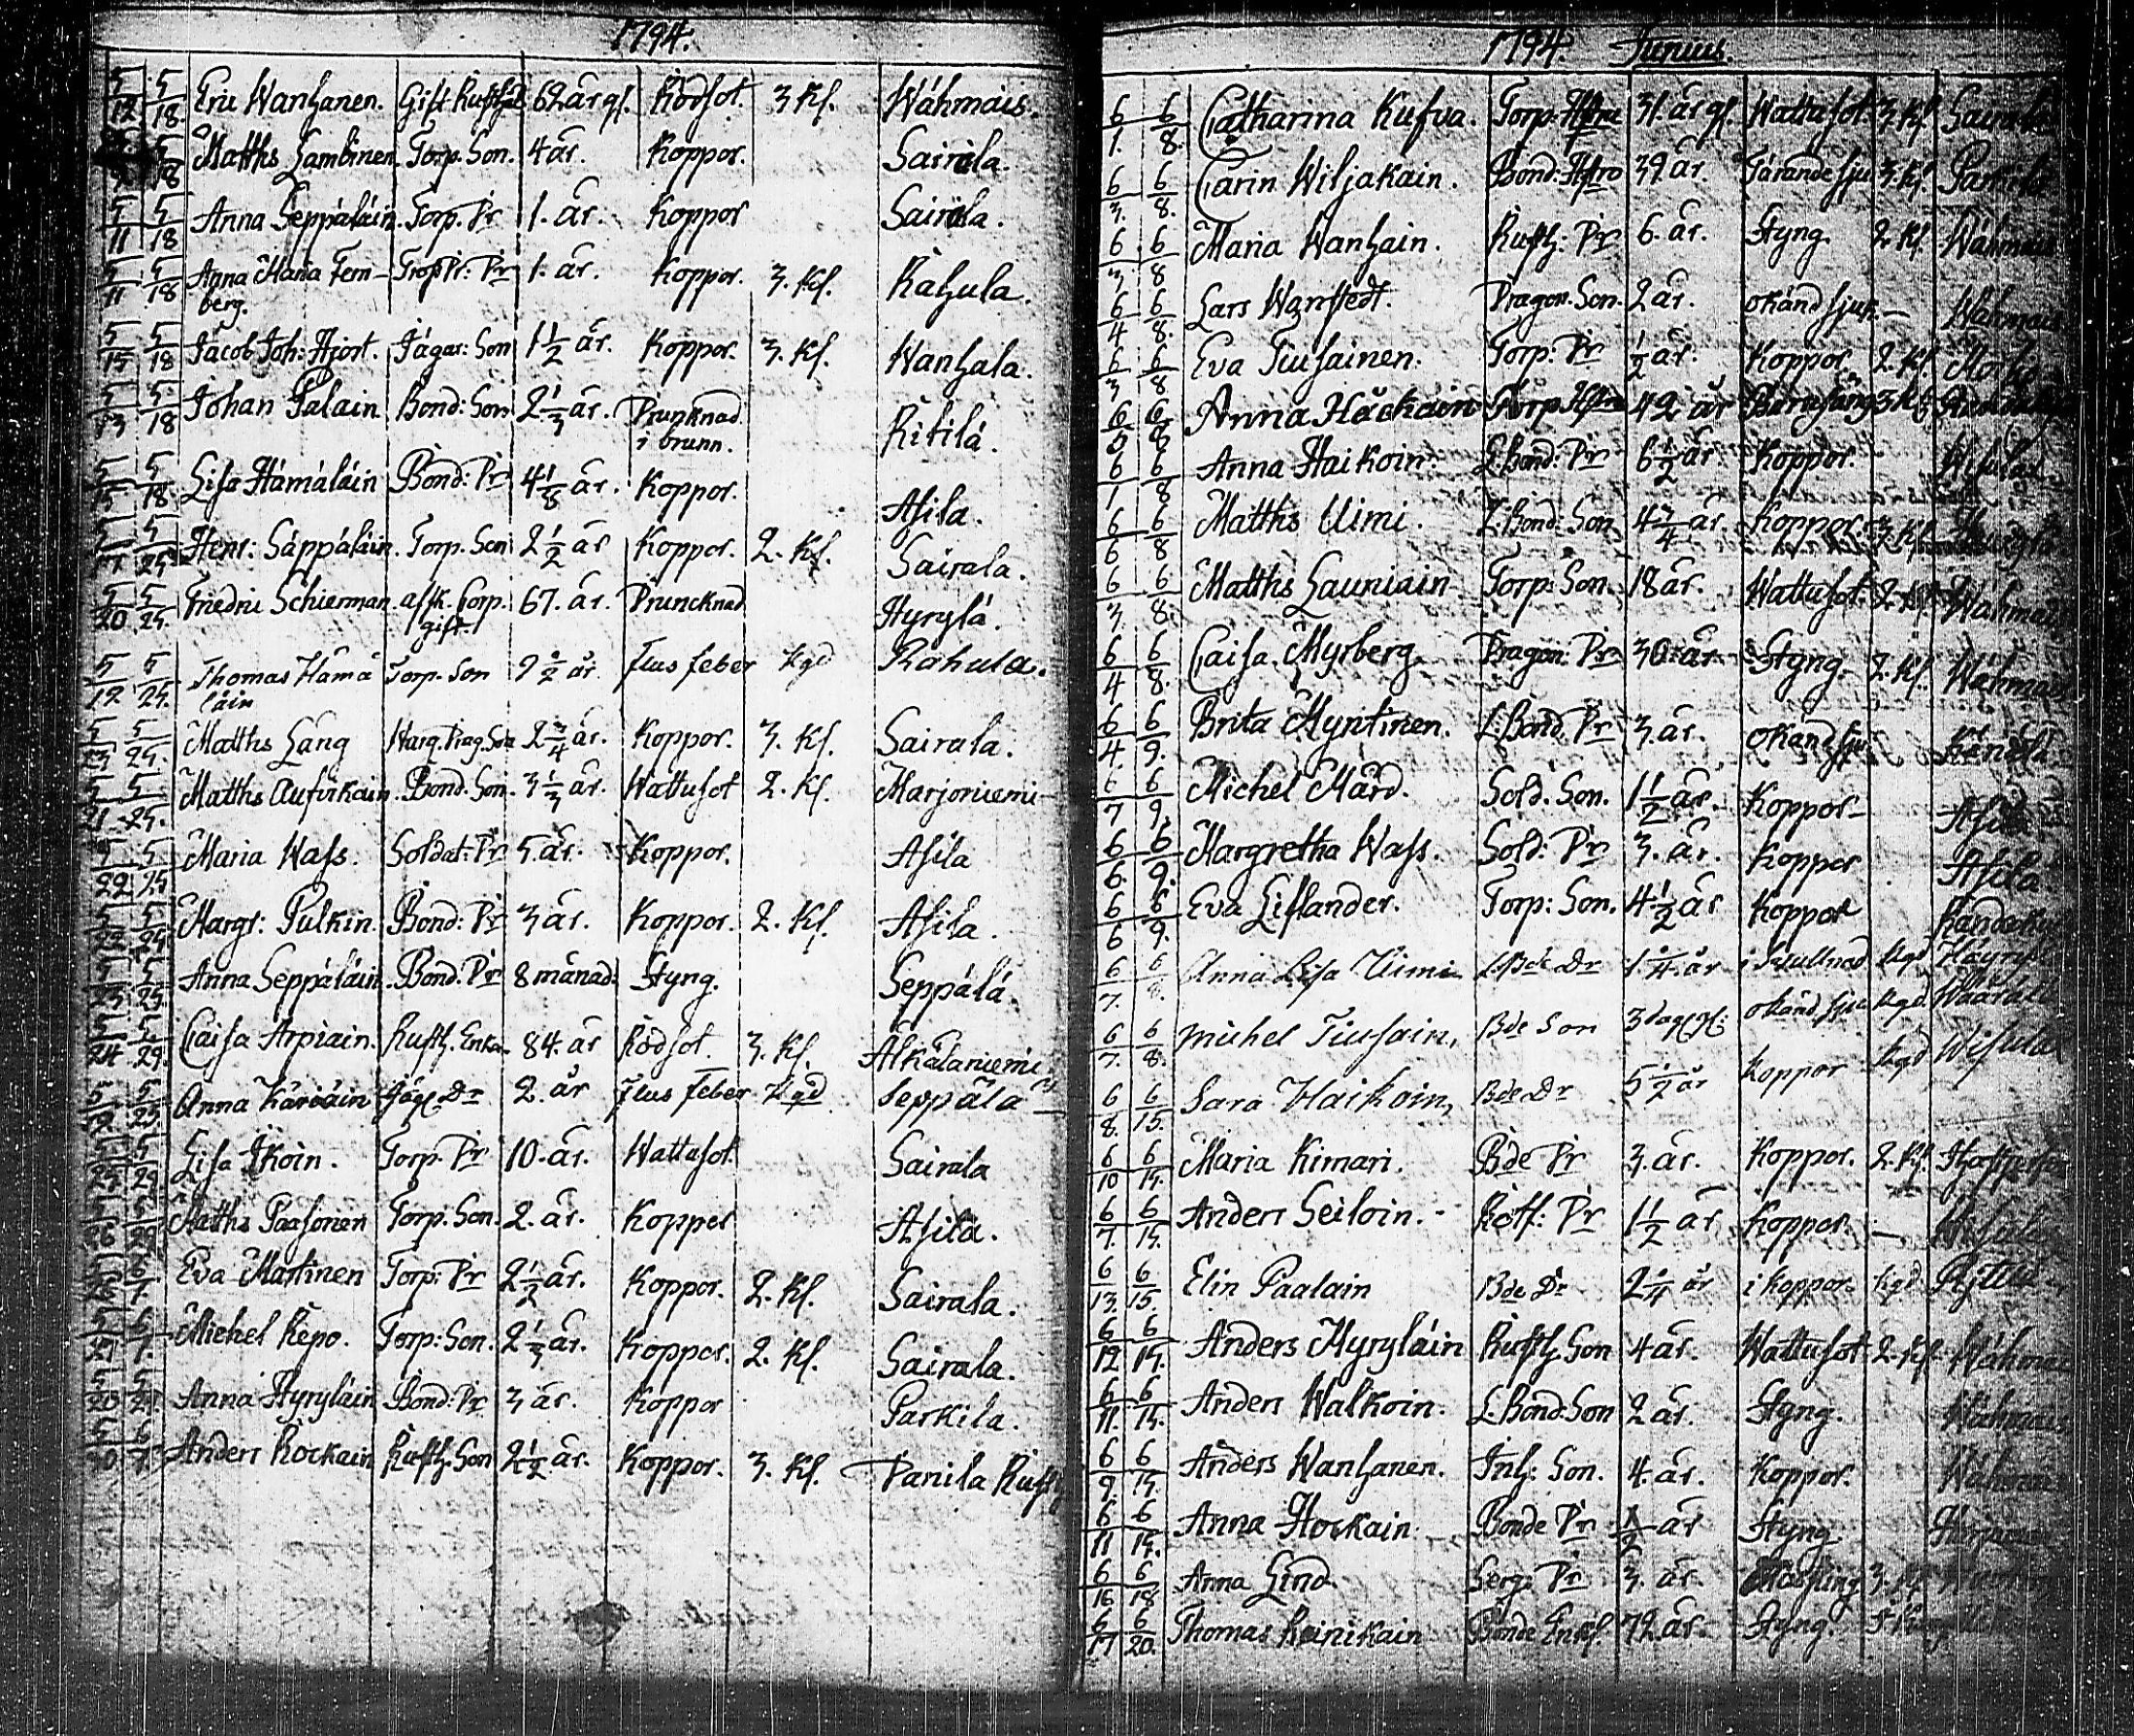 1794.
5/12 5/18. Eric Wanhanen. Gift Rusth: 62 år gl. Rödsot. 3 Kl. Wähmais.
5/18 Matths Lambinen. Torp. Son. 4 år. Koppor. Sairala.
5/11 5/18 Anna Seppäläin. Torp. Dr 1. år. Koppor Sairala.
5/11 5/18 Anna Maria Fern- Dr 1. år. Koppor. 3. Kl. Rahula.
berg.
5/15 5/18 Jacob Joh: Hjort. Jägar: Son 1 1/2 år. Koppor. 3. Kl. Wanhala.
5/13 5/18 Johan Palain Bond: Son 2 1/3 år. Druncknad Ritilä.
i brunn.
5/15 5/18. Lisa Hämäläin Bond: Dr 4 1/8 år. Koppor. Asila.
5/25 Henr: Säppäläin. Torp. Son 2 1/2 år Koppor. 2. Kl. Sairala.
5/20 5/25. Friedric Schierman. afsk. Corp. 67. år. Druncknad Hyrylä.
gift.
5/19 5/25. Thomas Hämä Torp. Son 2 1/2 år. flus feber Kgd Rahula.
läin
5/23 5/25. Matths Lång Drag. Son 2 3/4 år. Koppor. 3. Kl. Sairala.
5/21 5/25. Matths Aufvikain. Bond. Son. 3 1/3 år. Wattusot 2. Kl. Marjoniemi
5/22 5/25 Maria Wass. Soldat: Dr 5. år. Koppor. Asila
5/22 5/25 Margr: Pulkin. Bond: Dr 3 år. Koppor. 2. Kl. Asila.
5/25 5/25. Anna Seppäläin. Bond. Dr 8 månad. Styng. Seppälä.
5/24 5/29. Caisa Arpiain. Rusth. Enka. 84. år Rödsot. 3. Kl. Alkälaniemi.
5/25. Anna Käriäin Jäg. Dr 2. år flus feber Kgd Seppälä
5/25 5/29 Lisa Ikoin. Torp. Dr 10. år. Wattusot. Sairala
5/26 5/29 Matths Paasonen Torp. Son. 2. år. Koppor Asila.
Eva Martinen Torp: Dr 2 1/2 år. Koppor. 2. Kl. Sairala.
Michel Repo. Torp: Son. 2 1/3 år. Koppor. 2. Kl. Sairala.
Anna Hyryläin Bond: Dr 3 år. Koppor Parkila.
Anders Rockain Rusth. Son 2 1/2 år. Koppor. 3. Kl. Danila Rusth
1794. Junius.
6/1. 6/8. Catharina Kufva. Torp. Hstru 31. år gl. Wattusot. 3 Kl. Sairala
6/3. 6/8. Carin Wiljakain. Bond: Hstro 39 år. Tärande sju 3. Kl.
6/3 6/8 Maria Wanhain. Rusth: Dr 6. år. Styng. 2. Kl. Wähmais
6/4 6/8. Lars Wænstedt. Dragon. Son. 2 år. okänd sjuk. — Wähmais
6/3 6/8 Eva Tiusainen. Torp: Dr 1/2 år. Koppor. 2. Kl.
6/5 6/8 Anna Häckäin Torp Hstru 42 år Barnsäng 3 Kl
6/1 6/8 Anna Haikoin. L. Bond: Dr 6 1/2 år. Koppor. Wisulax
6/6 6/8 Matths Uimi. L. Bond: Son 4 3/4 år. Koppor. 3. Kl.
6/3. 6/8. Matths Launiain Torp: Son. 18 år. Wattusot. 2. Kl. Wähmais
6/4 6/8. Caisa Myrberg Dragon: Dr 30. år. Styng. 2. Kl. Wähmais
6/4. 6/9. Brita Myntinen. L. Bond. Dr 3. år. okänd sju.
6/7 6/9. Michel Mård. Sold. Son. 1 1/2 år. Koppor. Asila
6/6. 6/9. Margretha Wass. Sold: Dr 3. år. Koppor Asila
6/6 6/9. Eva Liflander. Torp: Son. 4 1/2 år Koppor
6/7. 6/8. Anna Lisa Uimi Dr 1 1/4 år Kgd
6/7. 6/8. Michel Tiusain, Bde Son 3 dag gl: okänd sju Kgd
6/8. 6/15. Sara Haikoin, Bde Dr 5 1/2 år koppor Kgd Wisula
6/10 6/15. Maria Kimari. Bde Dr 3. år. Koppor. 2. Kl.
6/7. 6/15. Anders Seiloin. Dr 1 1/2 år Koppor. — Wisula
6/13. 6/15. Elin Paalain Bde Dr 2 1/4 år i koppor Kgd
6/12 6/15. Anders Myryläin Rusth Son 4 år. Wattusot 2. Kl. Wähmais
6/11. 6/15. Anders Walkoin. L. Bond. Son 2 år. Styng. Wähmais
6/9. 6/15. Anders Wanhanen. Inh: Son. 4. år. Koppor. Wähmais
6/11 6/15. Anna Hockain Bonde Dr 1/2 år Styng
6/16 6/18 Anna Lind Serg. Dr 3. år. Mässling 3. Kl.
6/17 6/20. Thomas Reinikain Bonde Enkl. 72. år. Styng.